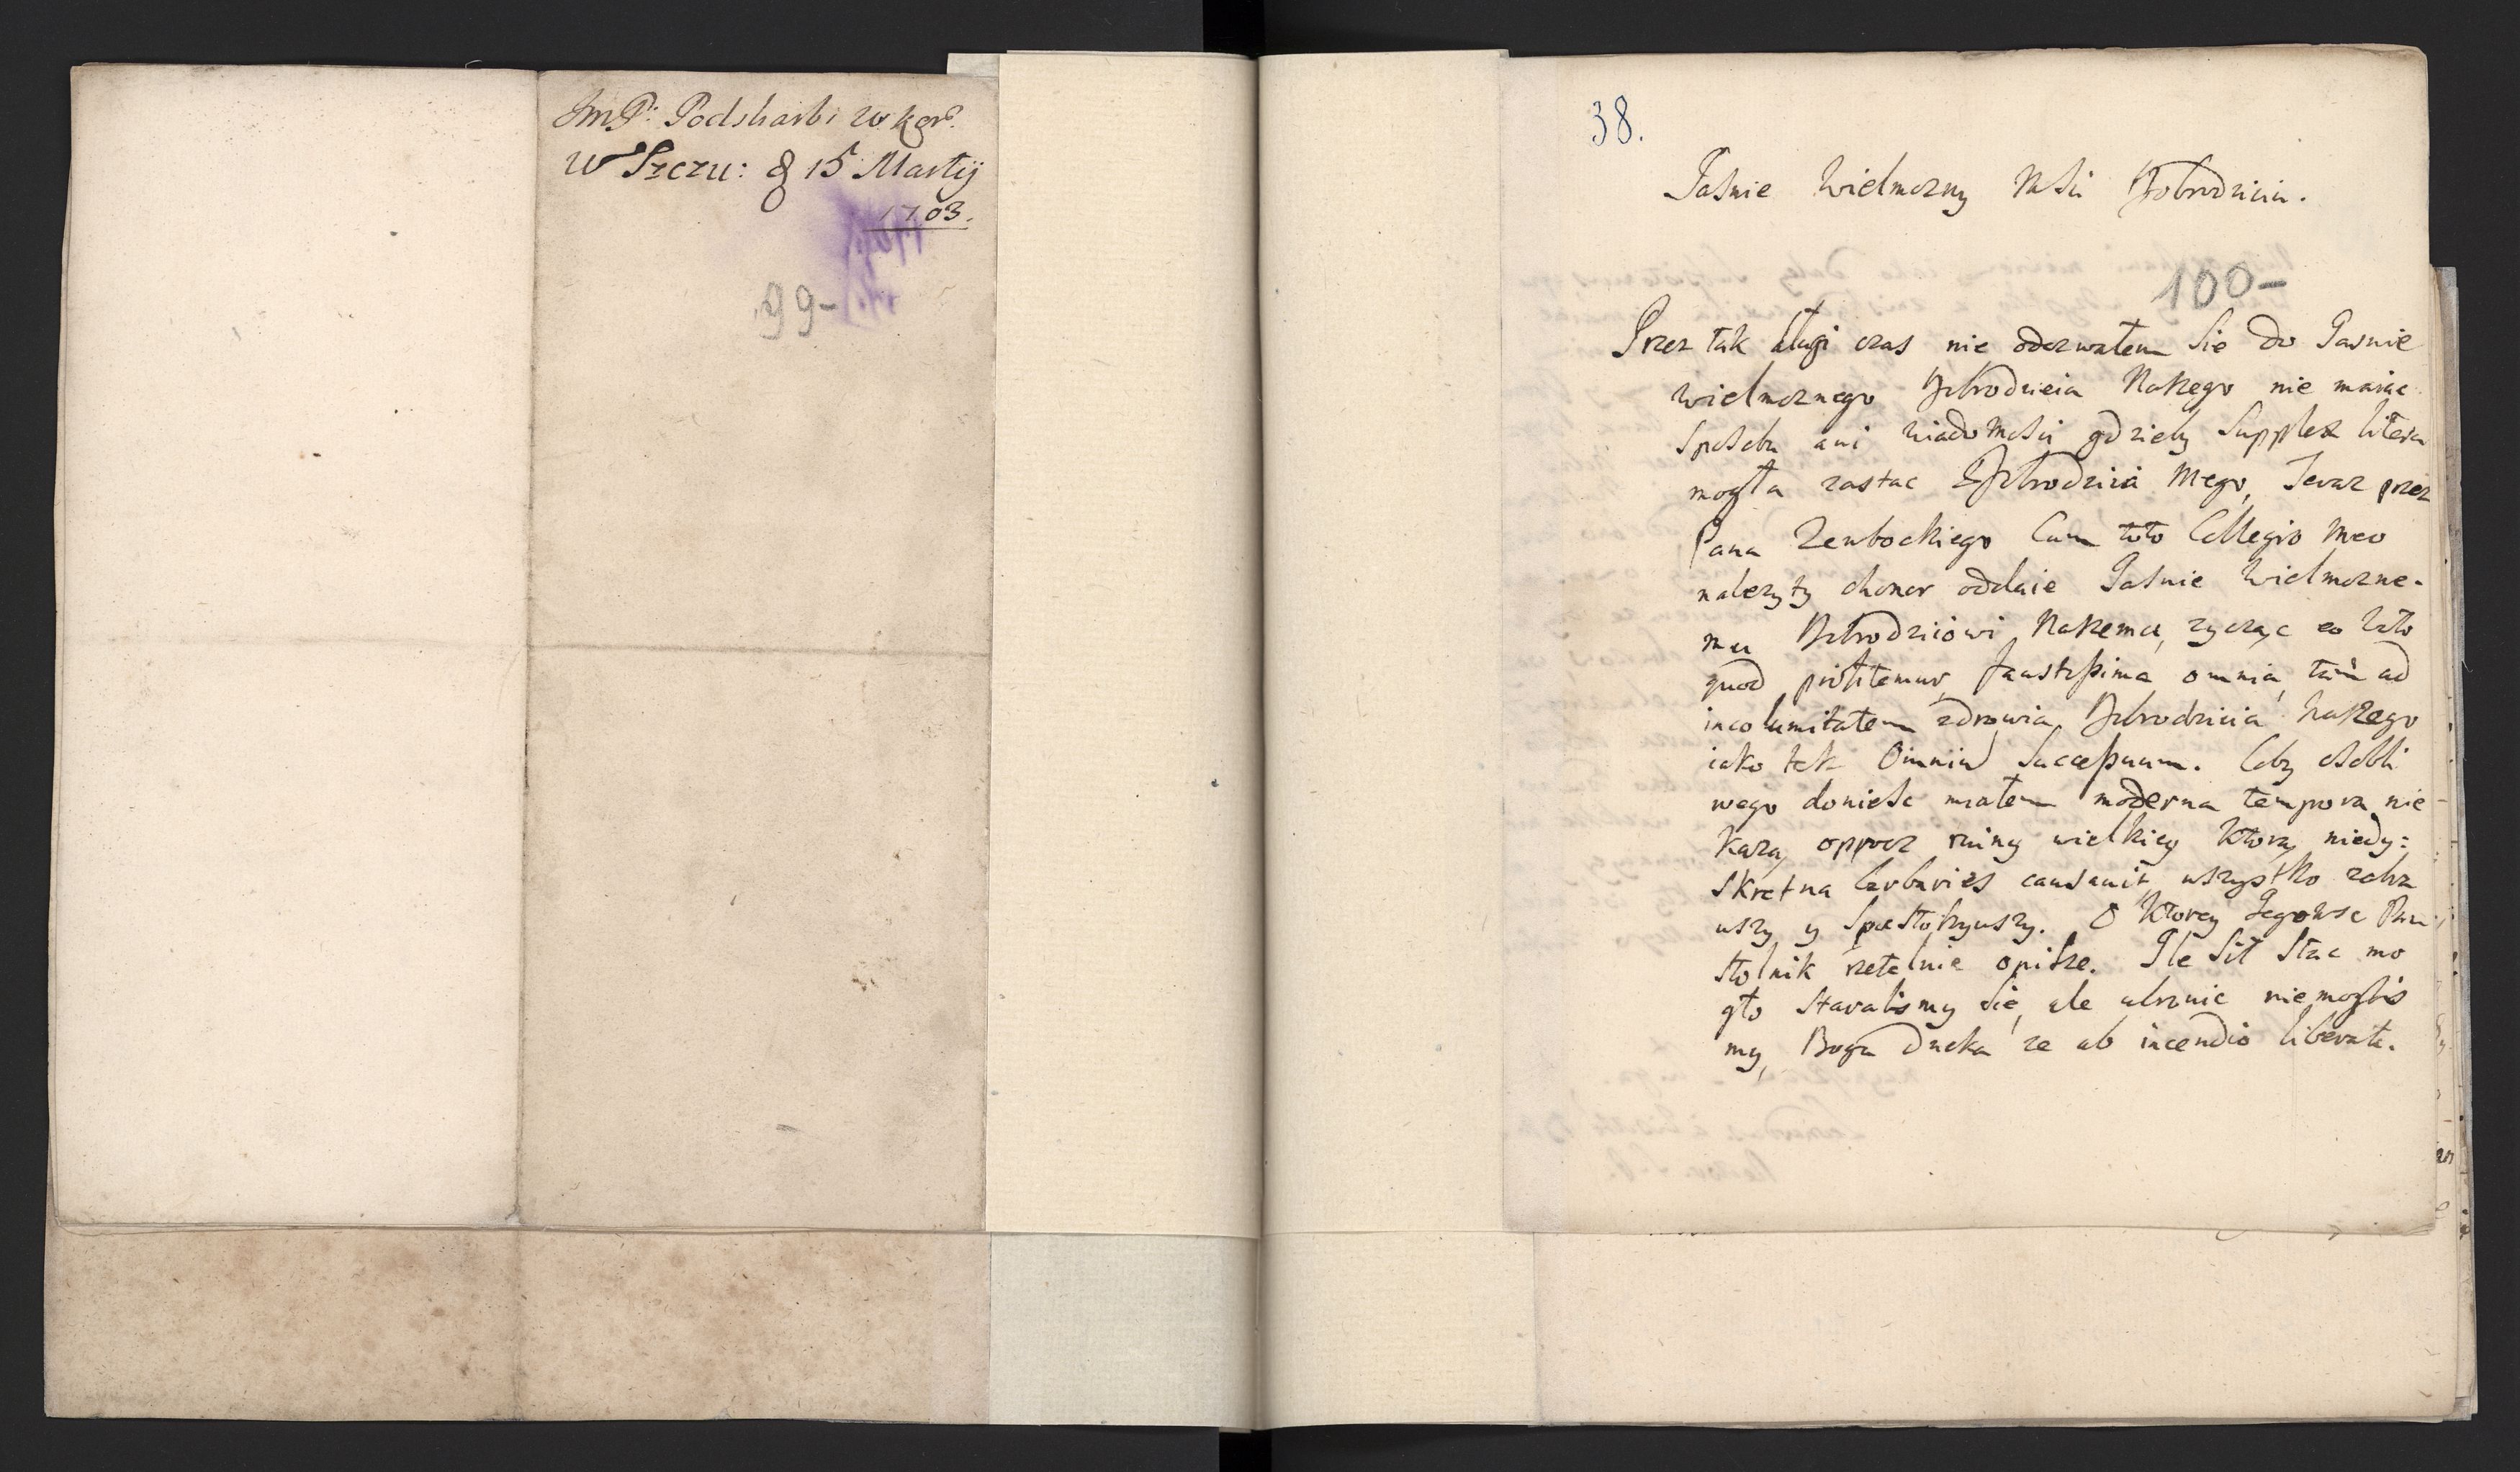 JmP: Podskarbi W kor.
W Szczu: 15 Martij
1703.
99-
38.
Jasnie Wielmozny Msci Dobrodzieiu.
100-
Przez tak dlugi czas nie odezwałem Sie do Jasnie
Wielmoznego Dobrodzieia Naszego nie maiąc
Sposobu ani wiadomosci gdzieby Supplex litera
mogła zastac Dobrodzieia mego, Teraz przez
Pana Zembockiego Cum toto Collegio meo
nalezyty chonor oddaie Jasnie Wielmozne-
mu Dobrodzieiowi Naszemu, zycząc ex toto
quod profitemur, faustissima omnia, tam ad
incolumitatem zdrowia Dobrodzieia naszego
iako tesz Omniu Successuum. Coby osobli
wego doniesc miałem moderna tempora nie
każą, opprocz ruiny wielkiey Ktorą niedy:
skretna barbaries causavit wszystko zabra
wszy y Spustoszywszy. O Ktorey Jegomsc Pan
Stolnik rzetelnie opisze. Ile Sił Stac mo
gło Staralismy Sie, ale ubronic niemoglis
my, Bogu Dzieka ze ab incendio liberati.